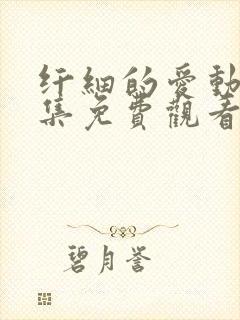 纤細的愛動
集免費觀看
碧月誉